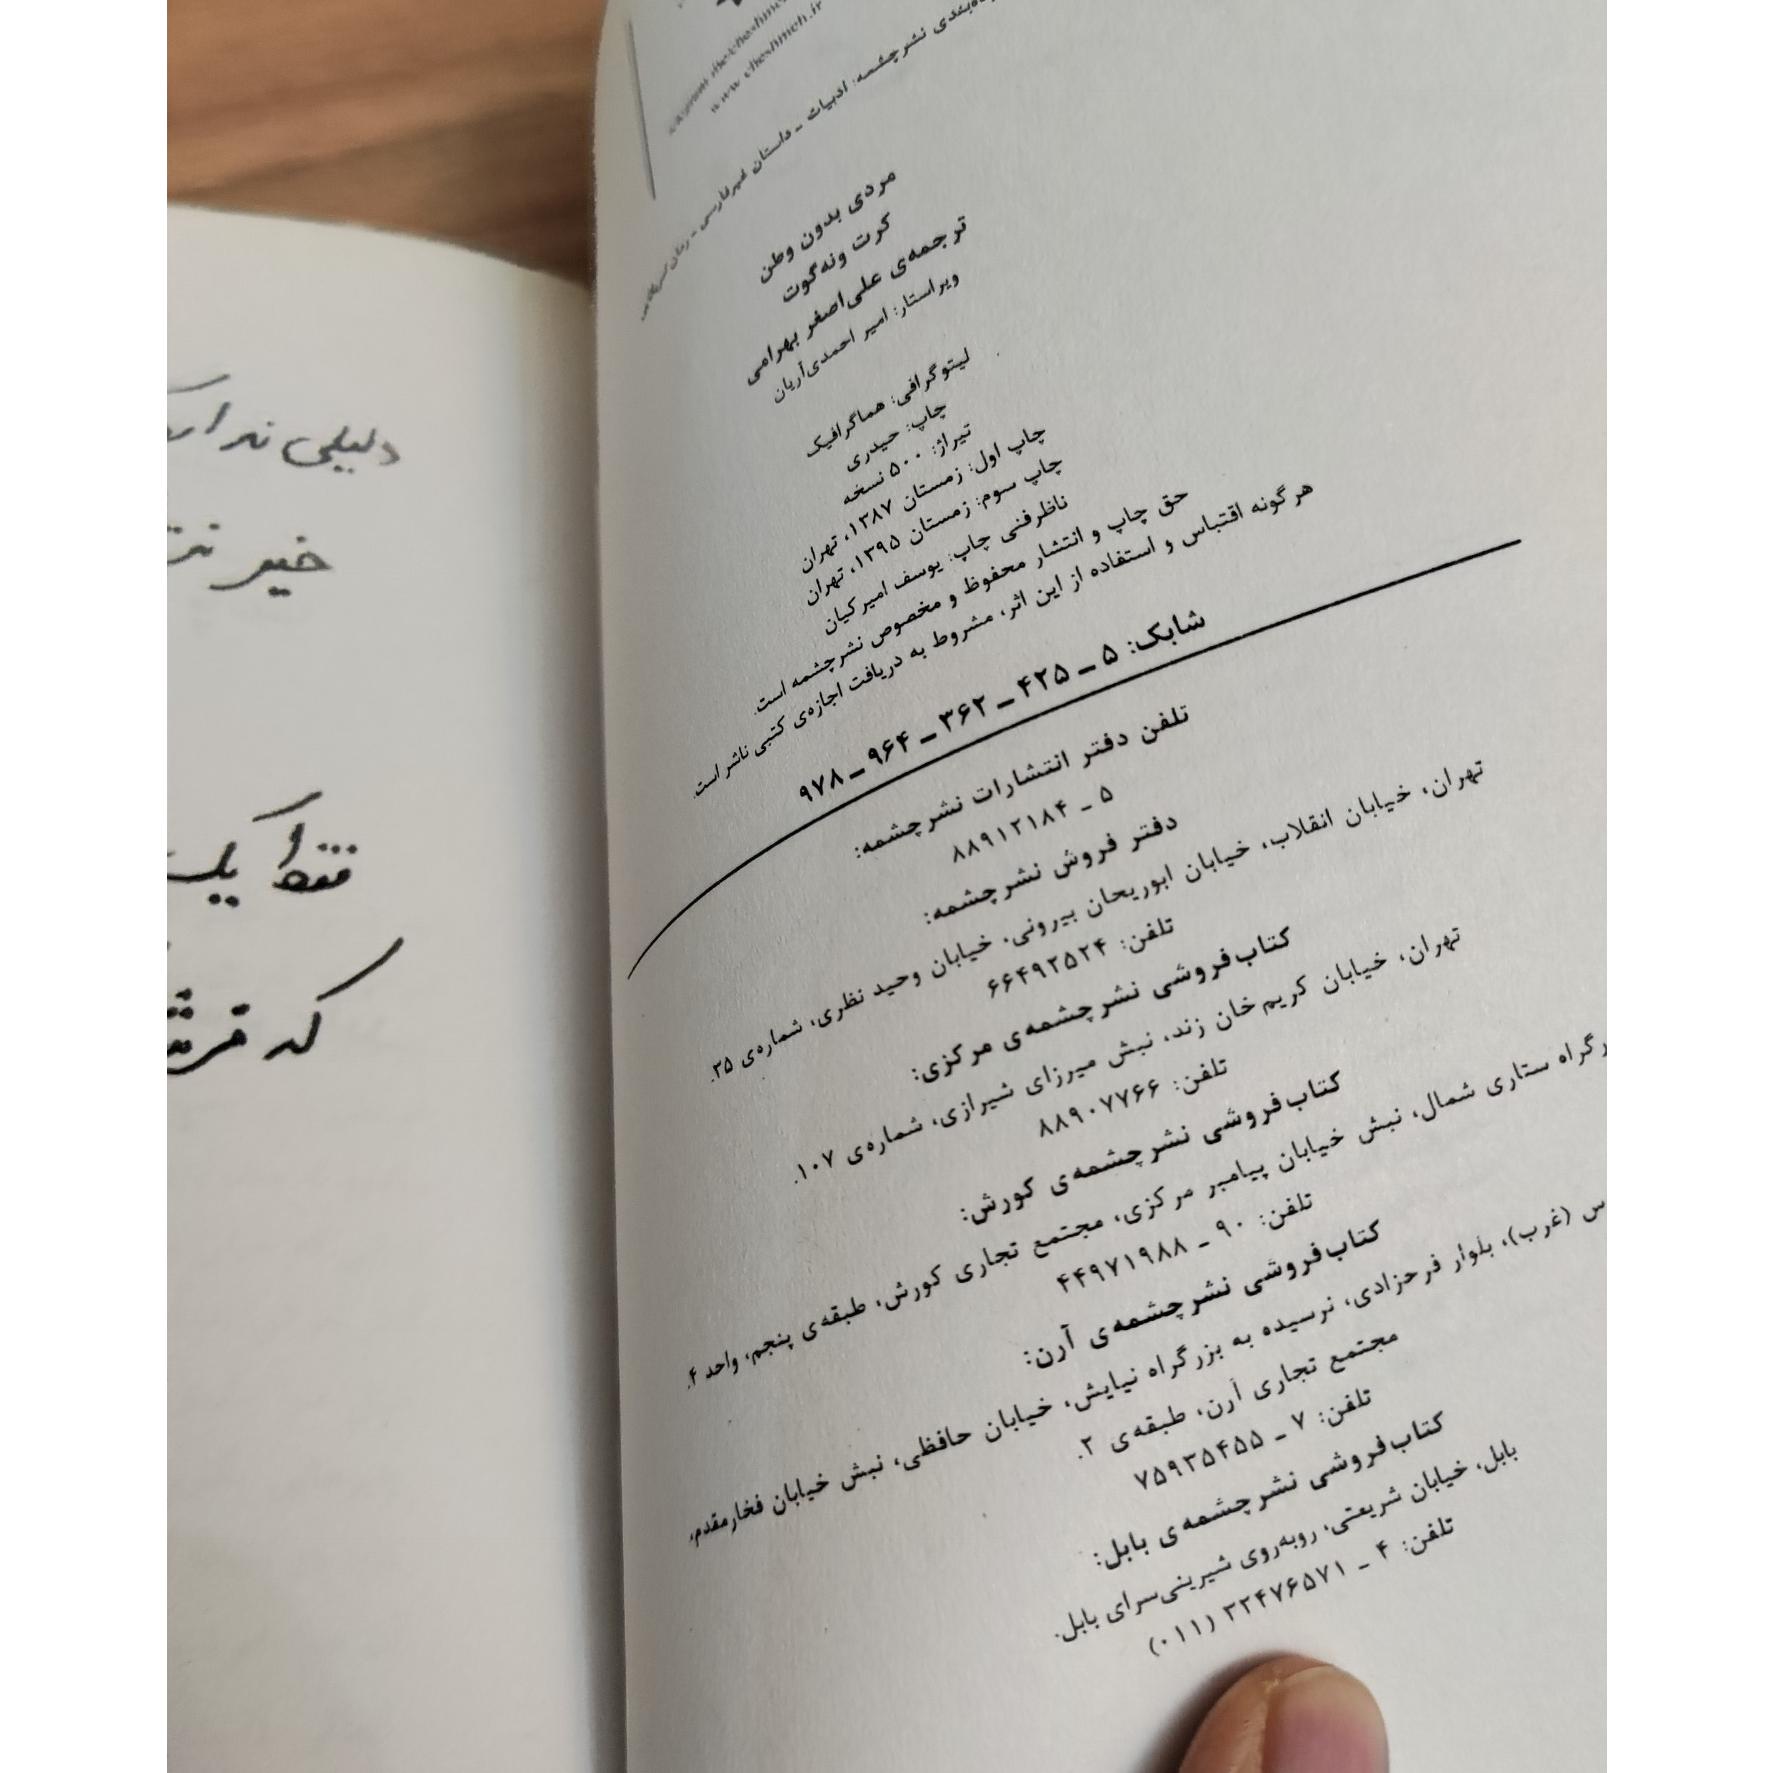 www.cheshmeh.ir
نشرچشمه: ادبیات ـ داستان غیرفارسی ـ رمان
مردی بدون وطن
کرت ونه‌گوت
ترجمه‌ی علی‌اصغر بهرامی
ویراستار: امیر احمدی‌آریان
لیتوگرافی: هماگرافیک
چاپ: حیدری
تیراژ: ۵۰۰ نسخه
چاپ اول: زمستان ۱۳۸۷، تهران
چاپ سوم: زمستان ۱۳۹۵، تهران
ناظر فنی چاپ: یوسف امیرکیان
حق چاپ و انتشار محفوظ و مخصوص نشرچشمه است.
هرگونه اقتباس و استفاده از این اثر، مشروط به دریافت اجازه‌ی کتبی ناشر است.
شابک: ۵ ـ ۴۲۵ ـ ۳۶۲ ـ ۹۶۴ ـ ۹۷۸
تلفن دفتر انتشارات نشرچشمه:
۵ ـ ۸۸۹۱۲۱۸۴
دفتر فروش نشرچشمه:
تهران، خیابان انقلاب، خیابان ابوریحان بیرونی، خیابان وحید نظری، شماره‌ی ۳۵.
تلفن: ۶۶۴۹۲۵۲۴
کتاب‌فروشی نشرچشمه‌ی مرکزی:
تهران، خیابان کریم خان زند، نبش میرزای شیرازی، شماره‌ی ۱۰۷.
تلفن: ۸۸۹۰۷۷۶۶
کتاب‌فروشی نشرچشمه‌ی کورش:
ستاری شمال، نبش خیابان پیامبر مرکزی، مجتمع تجاری کورش، طبقه‌ی پنجم، واحد ۴.
تلفن: ۹۰ ـ ۴۴۹۷۱۹۸۸
کتاب‌فروشی نشرچشمه‌ی آرن:
(غرب)، بلوار فرحزادی، نرسیده به بزرگراه نیایش، خیابان حافظی، نبش خیابان فخارمقدم،
مجتمع تجاری آرن، طبقه‌ی ۲.
تلفن: ۷ ـ ۷۵۹۳۵۴۵۵
کتاب‌فروشی نشرچشمه‌ی بابل:
بابل، خیابان شریعتی، روبه‌روی شیرینی‌سرای بابل.
تلفن: ۴ ـ ۳۲۴۷۶۵۷۱ (۰۱۱)
دلیلی
خیر
فقط یک
که